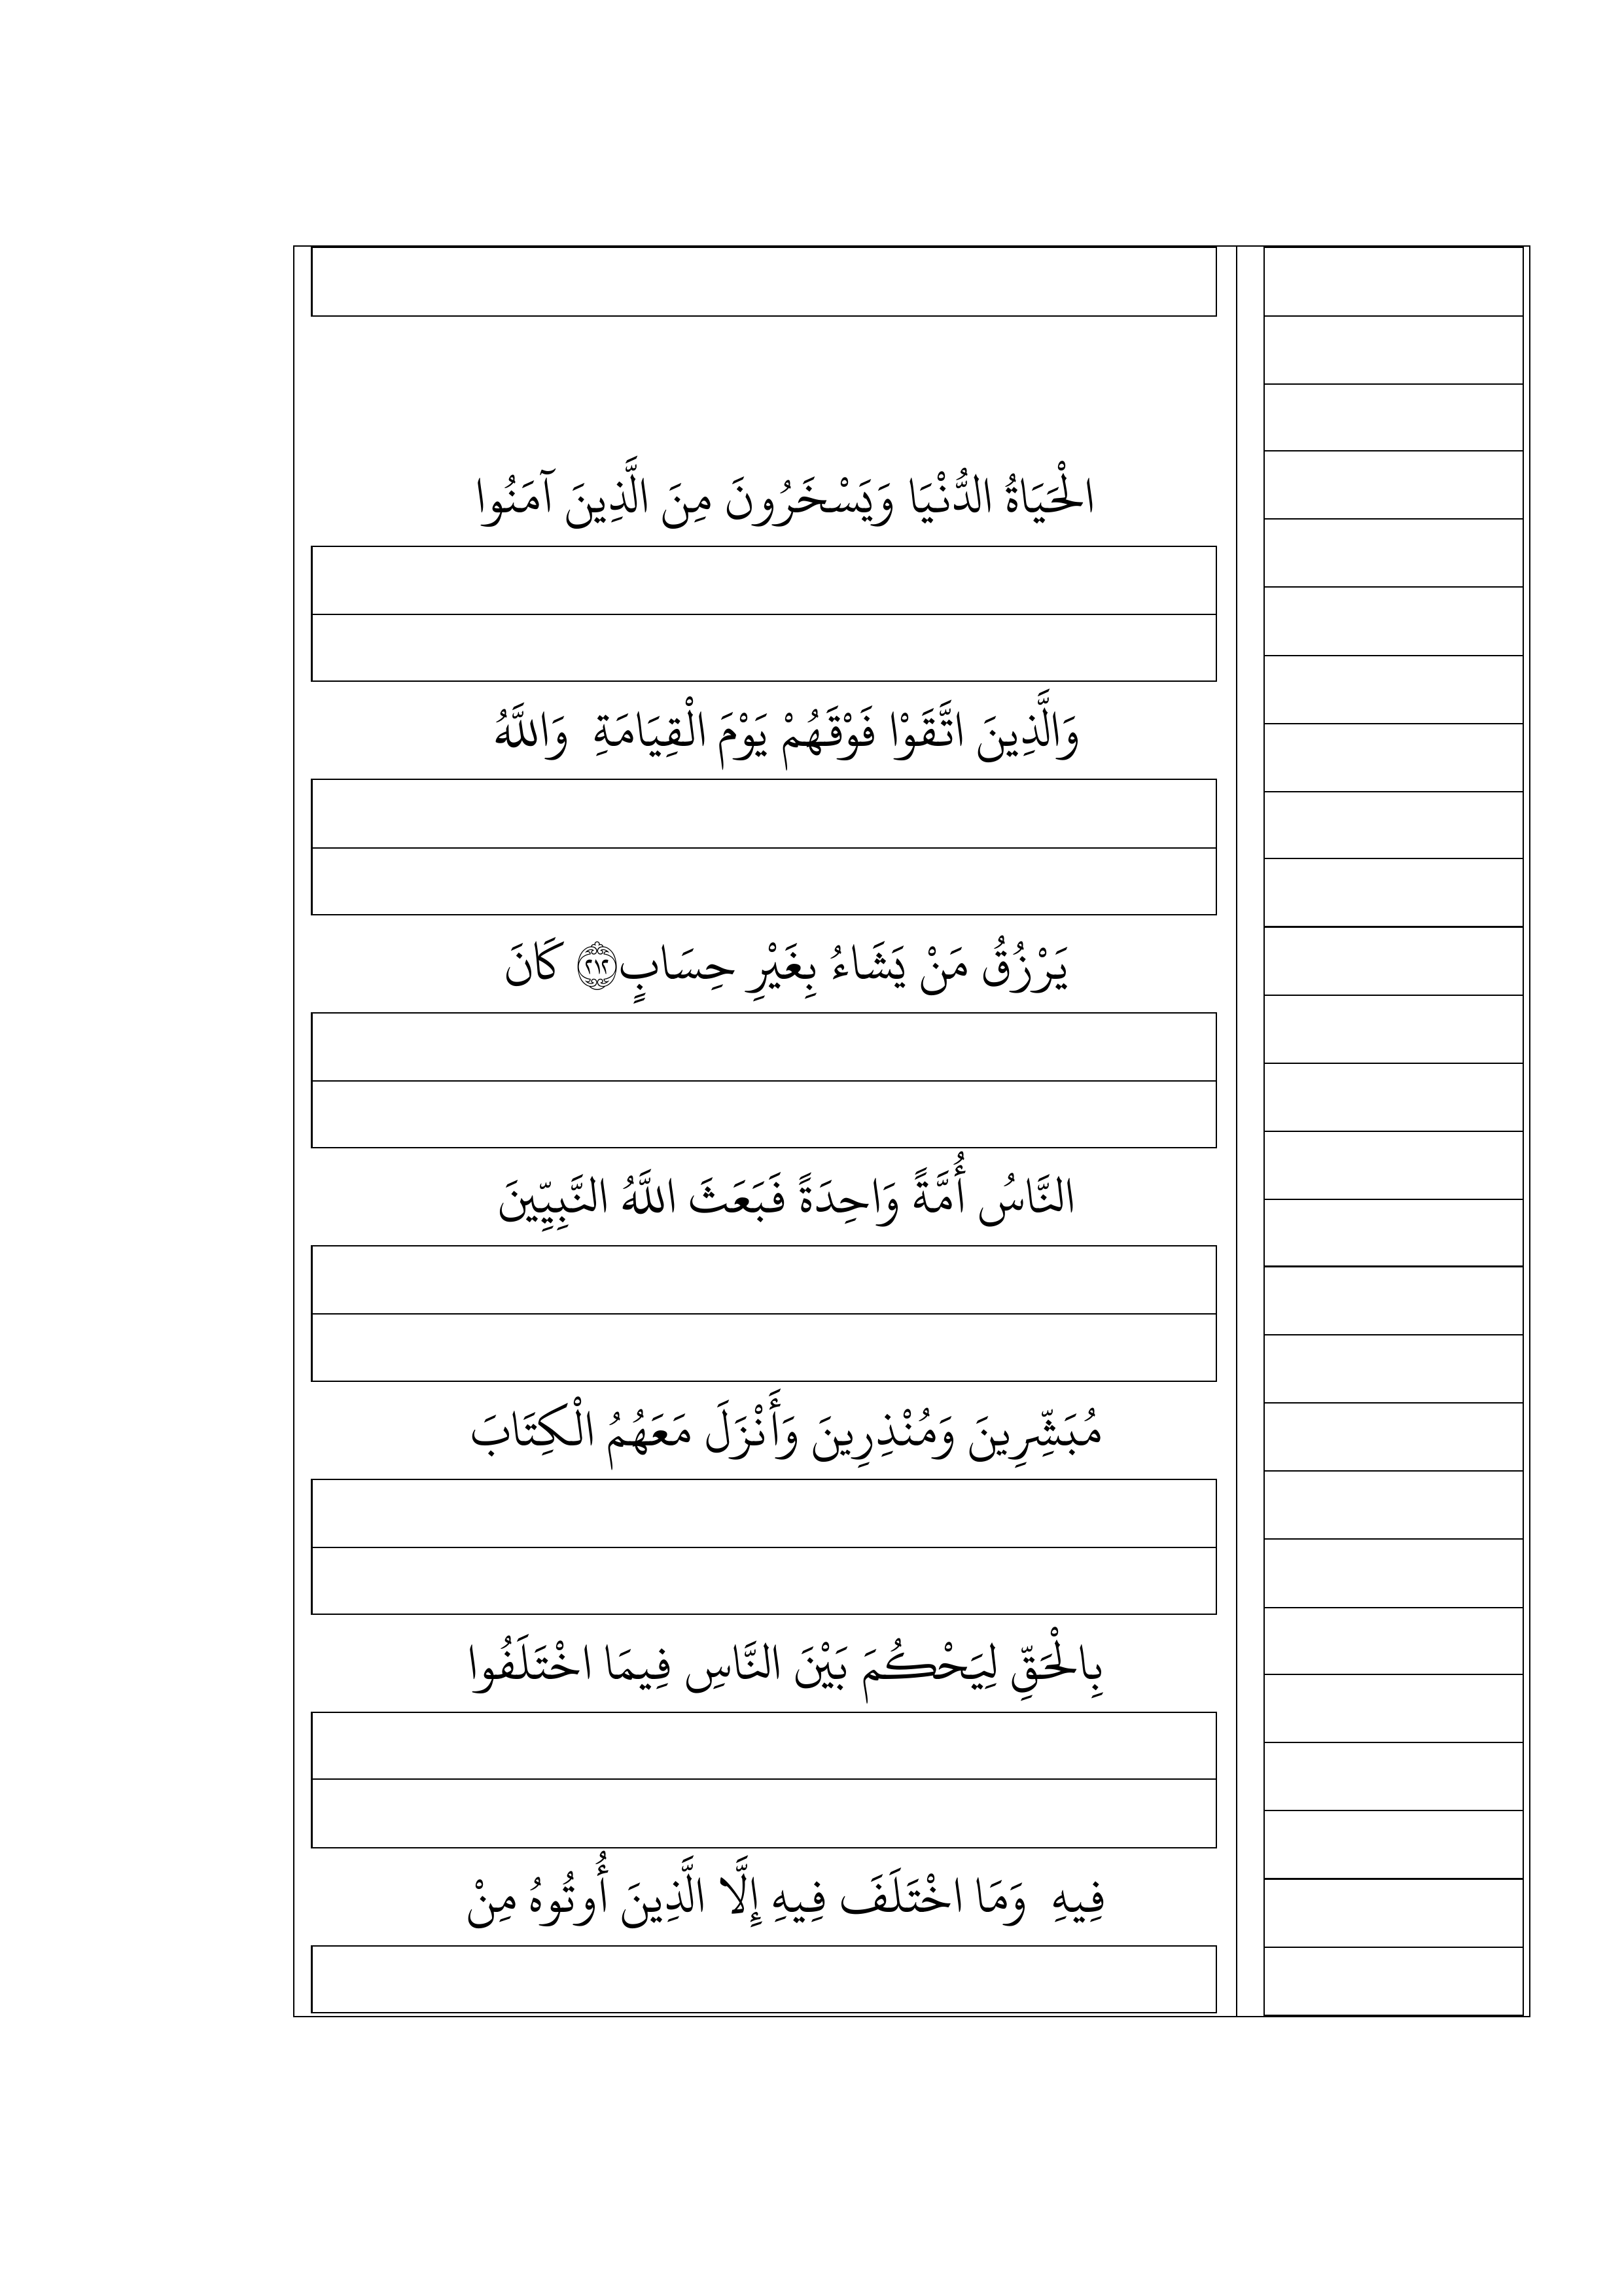 الْحَيَاةُ الدُّنْيَا وَيَسْخَرُونَ مِنَ الَّذِينَ آمَنُوا
وَالَّذِينَ اتَّقَوْا فَوْقَهُمْ يَوْمَ الْقِيَامَةِ وَاللَّهُ
يَرْزُقُ مَنْ يَشَاءُ بِغَيْرِ حِسَابٍ ﴿٢١٢﴾ كَانَ
النَّاسُ أُمَّةً وَاحِدَةً فَبَعَثَ اللَّهُ النَّبِيِّينَ
مُبَشِّرِينَ وَمُنْذِرِينَ وَأَنْزَلَ مَعَهُمُ الْكِتَابَ
بِالْحَقِّ لِيَحْكُمَ بَيْنَ النَّاسِ فِيمَا اخْتَلَفُوا
فِيهِ وَمَا اخْتَلَفَ فِيهِ إِلَّا الَّذِينَ أُوتُوهُ مِنْ